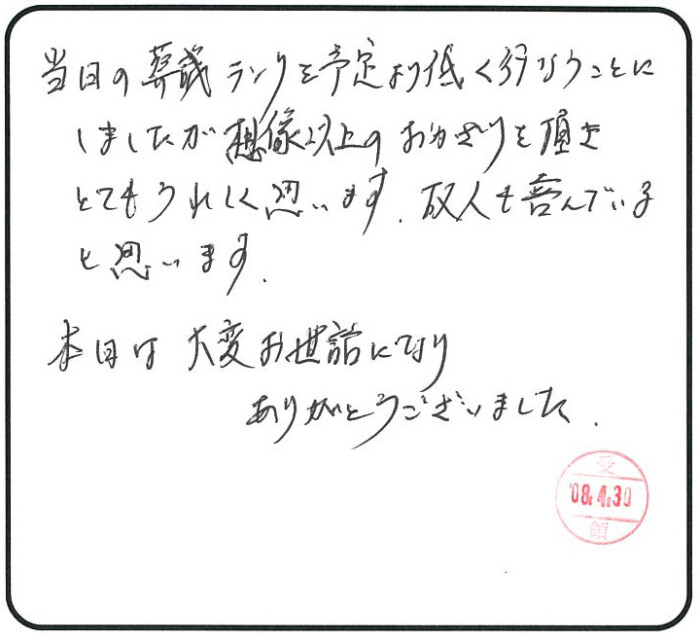 当日の葬儀ランクを予定より低く行なうことに
しましたが想像以上のおかざりを頂き
とてもうれしく思います.故人も喜んでいる
と思います.
本日は大変お世話になり
ありがとうございました.
受
'08.4.30
領